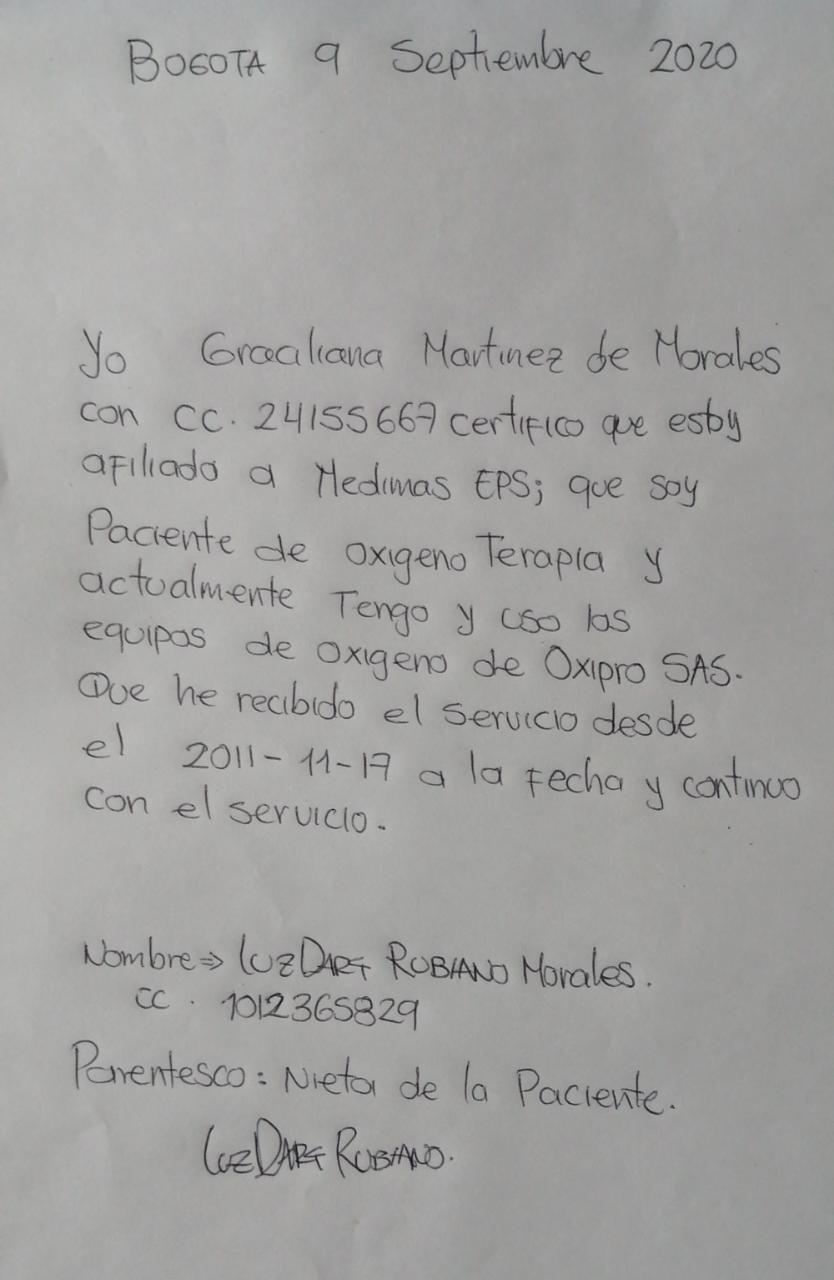 BOGOTA 9 Septiembre 2020
Yo Gracaliana Martinez de Morales
con CC. 24155667 certifico que estoy
afiliado a Medimas EPS; que soy
Paciente de oxigeno Terapia y
actualmente Tengo y uso los
equipos de oxigeno de Oxipro SAS.
Que he recibido el servicio desde
el 2011-11-17 a la fecha y continuo
con el servicio.
Nombre⇒ Luz Dary RUBIANO Morales.
CC. 1012365829
Parentesco: Nieta de la Paciente.
Luz Dary RUBIANO.